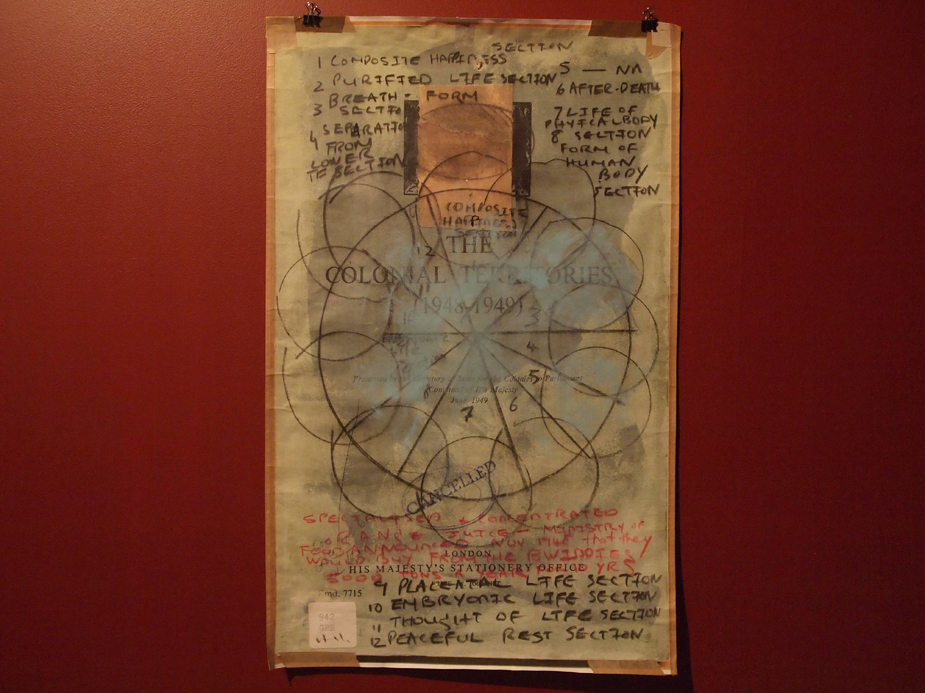 SECTION
1 COMPOSITE HAPPINESS
2 PURIFIED LIFE SECTION
BREATH - FORM
3 SECTION
4 SEPARATION
FROM
LOWER
SECTION
5 — NA
6 AFTER-DEATH
7 LIFE OF
PHYSICAL BODY
8 SECTION
FORM OF
HUMAN
BODY
SECTION
COMPOSITE
HAPPINESS
SECTION
12
THE
COLONIAL TERRITORIES
(1948-1949)
3
4
5
6
7
Majesty
June 1949
CANCELLED
SPECIALISED & CONCENTRATED
ORANGE JUICE - MINISTRY OF
FOOD ANNOUNCED NOV 1948 that they
WOULD BUY FROM THE BWINDIES
LONDON
HIS MAJESTY'S STATIONERY OFFICE
5000 TONS A YEAR YRS
Cmd. 7715
9 PLACENTAL LIFE SECTION
10 EMBRYONIC LIFE SECTION
11 THOUGHT OF LIFE SECTION
12 PEACEFUL REST SECTION